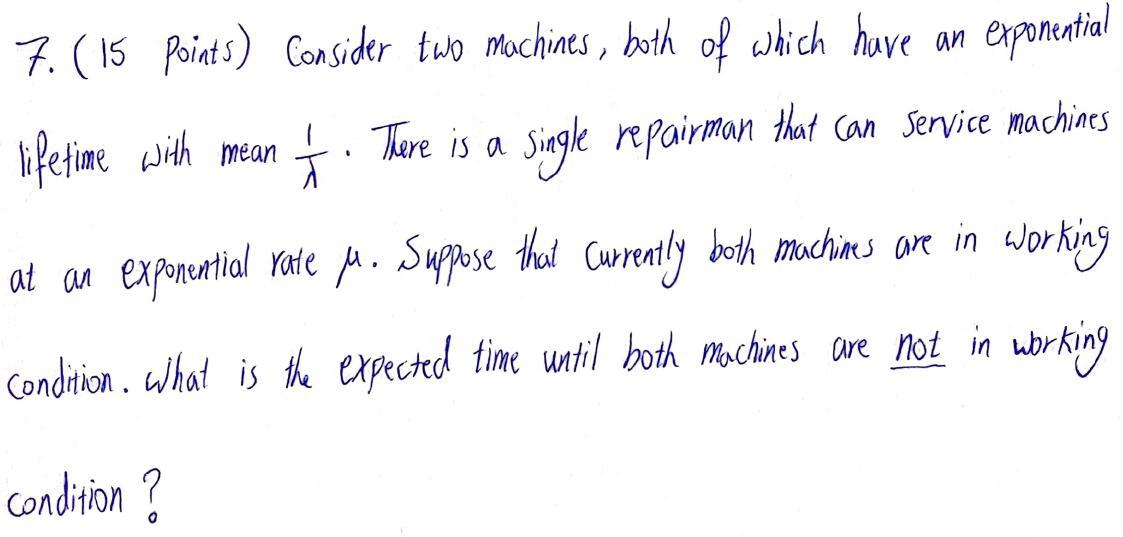 7. (15 Points) Consider two machines, both of which have an exponential
lifetime with mean 1/λ. There is a single repairman that can service machines
at an exponential rate μ. Suppose that currently both machines are in working
condition. What is the expected time until both machines are not in working
condition?